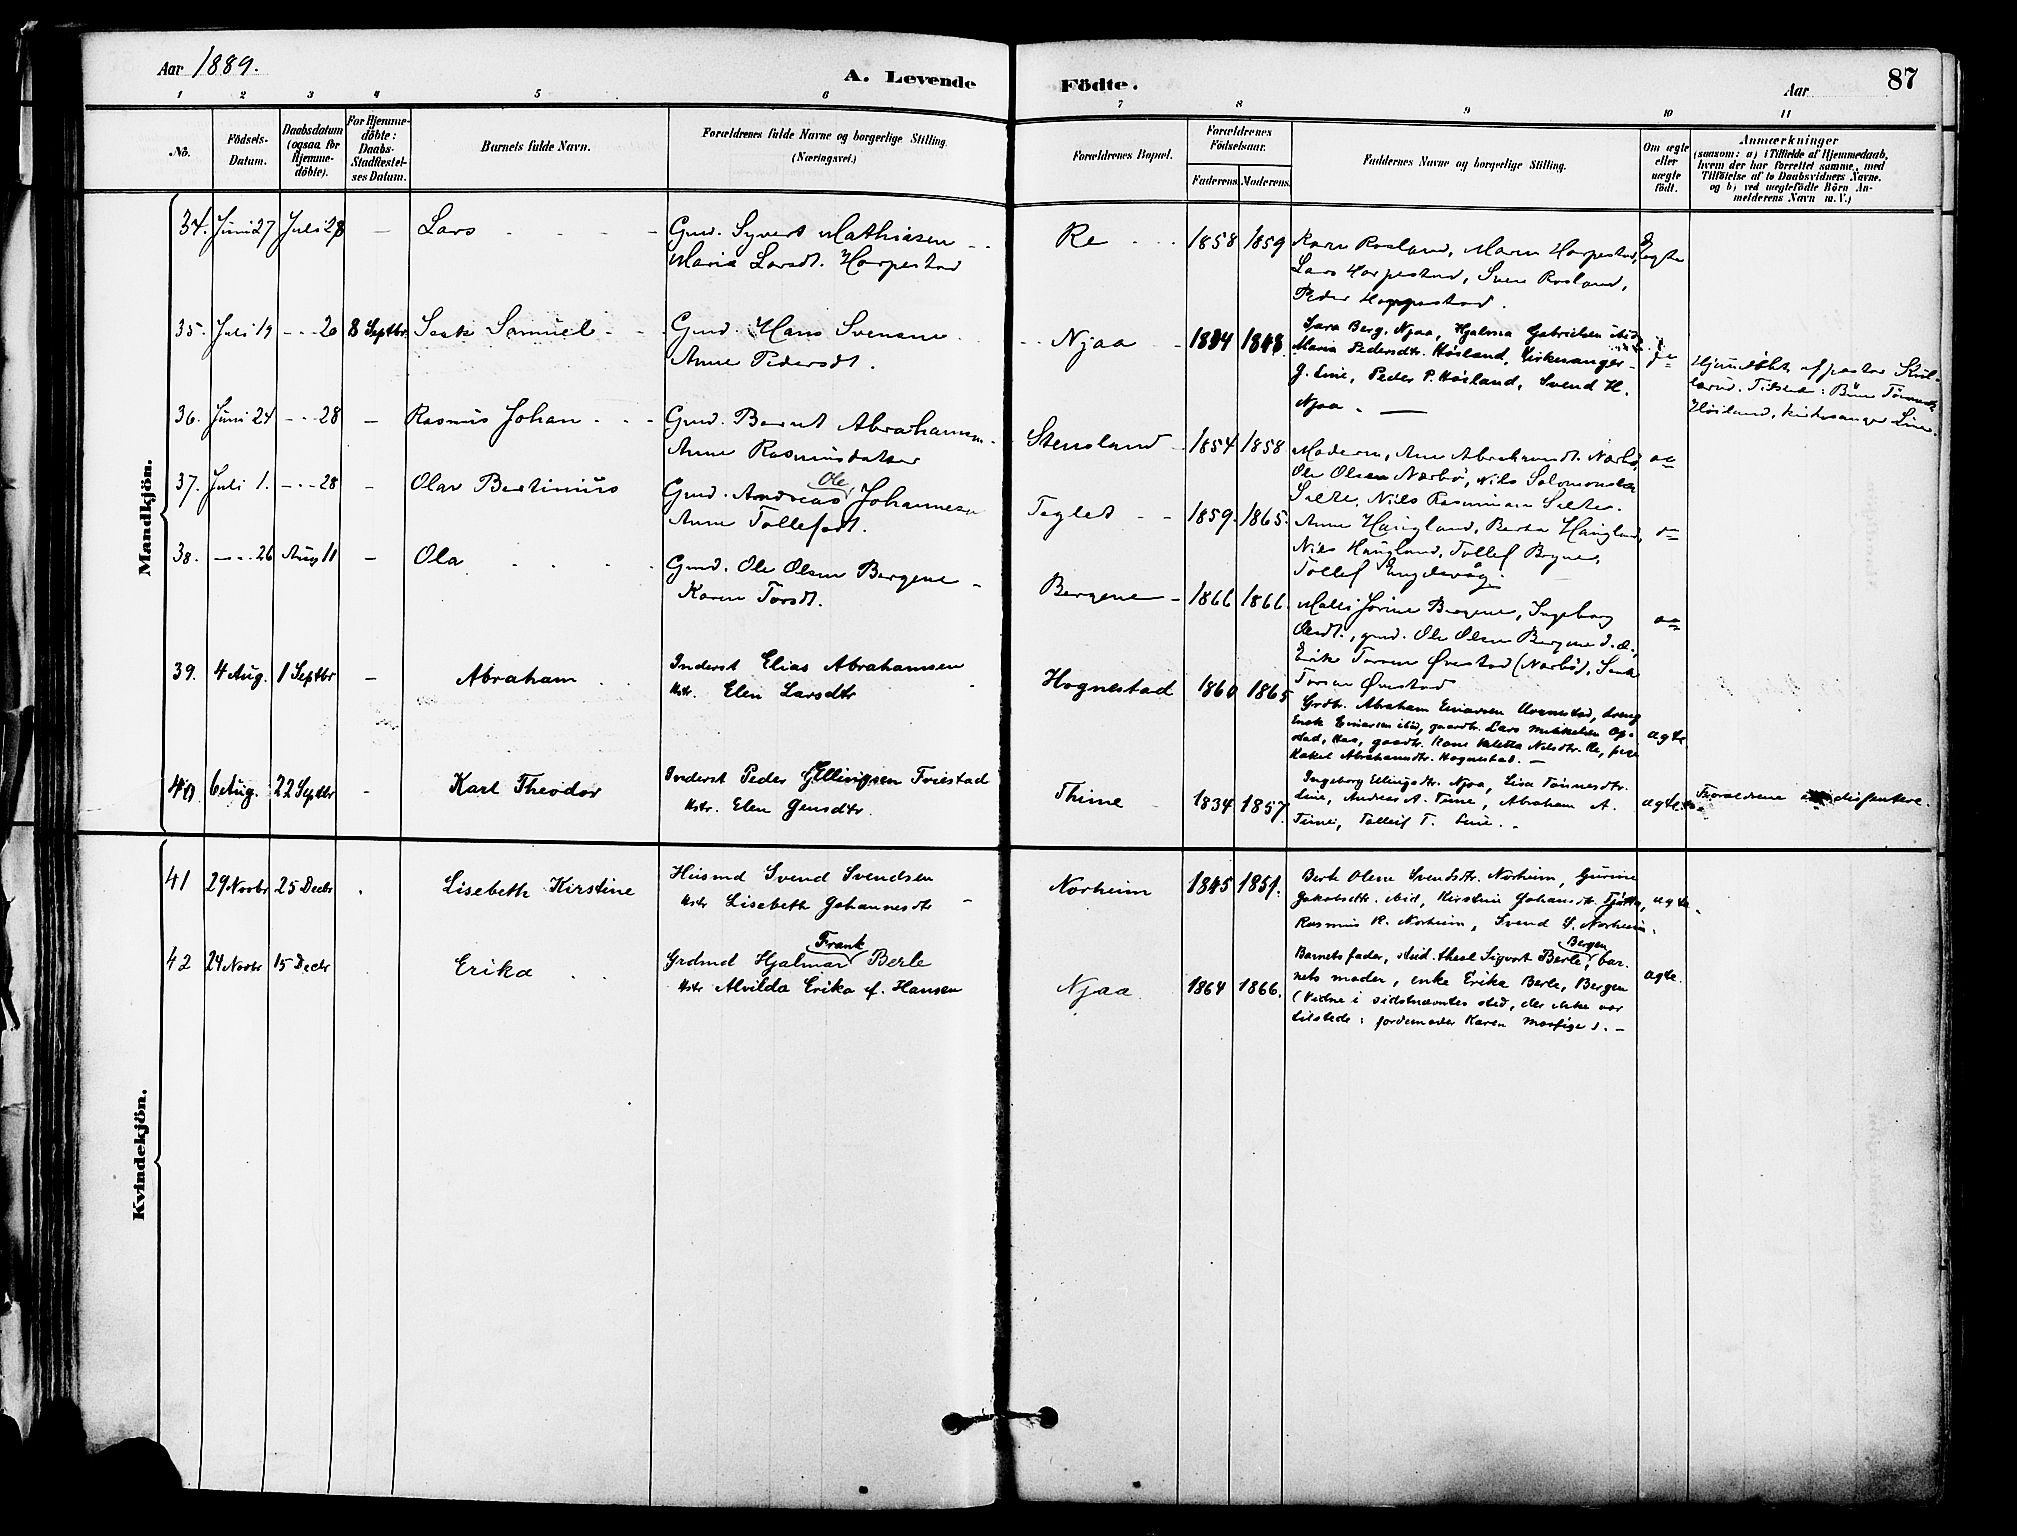 Aar 1889.
A. Levende
Födte.
Aar
87
1 2 3 4 5 6 7 8 9 10 11
No.
Födsels-
Datum.
Daabsdatum
(ogsaa for
Hjemme-
döbte).
For Hjemme-
döbte:
Daabs-
Stadfæstel-
ses Datum.
Barnets fulde Navn.
Forældrenes fulde Navne og borgerlige Stilling.
(Næringsvei.)
Forældrenes Bopæl.
Forældrenes
Födselsaar.
Faderens. Moderens.
Faddernes Navne og borgerlige Stilling.
Om ægte
eller
uægte
født.
Anmærkninger
(saasom: a) i Tilfælde af Hjemmedaab,
hvem der har forrettet samme, med
Tilföielse af to Daabsvidners Navne,
og b) ved uægtefödte Börn An-
melderens Navn m. V.)
Mandkjön.
34. Juni 27 Juli 28 — Lars
Gmd. Syvert Mathiasen
Maria Larsdt. Harpestad
Re 1858 1859
Karn Rosland, Maren Harpestad,
Lars Harpestad, Sven Rosland,
Peder Harpestad.
Ægte
35. Juli 19 - - 20 8 Septbr. Samuel
Gmd. Hans Svensne
Anne Pedersdt.
Njaa
Sara Berg, Njaa, Hjalma Gabrielsen ibid
Maria Pedersdtr. Høiland, Kirkesanger
J. Line, Peder P. Høiland, Svend H.
Njaa. —
Hjemdøbt af pastor
Høiland, kirkesanger Line.
36. Juni 24 - - 28 — Rasmus Johan
Gmd. Berent Abrahamsen
Anne Rasmusdatter
Stensland 1854 1858
Moderen, Ane Abrahamsdt. Nærbø,
Ole Olsen Nærbø, Nils Salomonsen
Selte, Nils Rasmussen Selte.
37. Juli 1. - - 28 — Olav Bertinius
Ole
Gmd. Andreas Johannesen
Anne Tollefsdt.
Teglet 1859. 1865.
Anne Haugland, Berta Haugland,
Nils Haugland, Tollef Bryne,
Tollef
38. - - 26 Aug 11 — Ola
Gmd. Ole Olsen Bergene
Karen Torsdt.
Bergene 1866 1866.
Malli Jorine Bergene, Ingeborg
Olsdt., gmd. Ole Olsen Bergene d. æ.,
Erik Torsen Øvestad (Nærbø),
Torsen Øvestad
39. 4 Aug. 1 Septbr — Abraham
Inderst Elias Abrahamsen
Hstr. Elen Larsdtr
Hognestad 1860 1865
Grdbr. Abraham
Rakel Abrahamsdtr. Hognestad. —
ægte
40. 6 Aug. 22 Septbr - Karl Theodor
Inderst Peder Ellingsen Friestad
Hstr. Elen Jensdtr.
Thime 1834 1857.
Ingeborg Ellingsdtr. Njaa, Lisa Tönnesdtr.
Line, Andreas A. Time, Abraham A.
Time, Tolleif T. Line. -
ægte
Forældrene dissentere.
Kvindekjön.
41 29 Novbr 25 Decbr Lisebeth Kirstine
Husmd Svend Svendsen
Hstr Lisebeth Johannesdtr
Norheim 1845 1851.
Berte Olene Svendsdtr. Norheim, Gurine
Jakobsdtr. ibid, Kirstine Johansdtr. Tjøtta,
Rasmus R. Norheim, Svend S. Norheim.
ægte.
42 24 Novbr 15 Decbr Erika
Frank
Grdmd Hjalmar Berle
Hstr Alvilda Erika f. Hansen
Njaa 1864 1866.
Bergen
Barnets fader, stud. theol Sigvart Berle, bar-
nets moder, enke Erika Berle, Bergen
(Vidne i sidstnævntes sted, der ikke var
tilstede: jordemoder Karen
ægte.